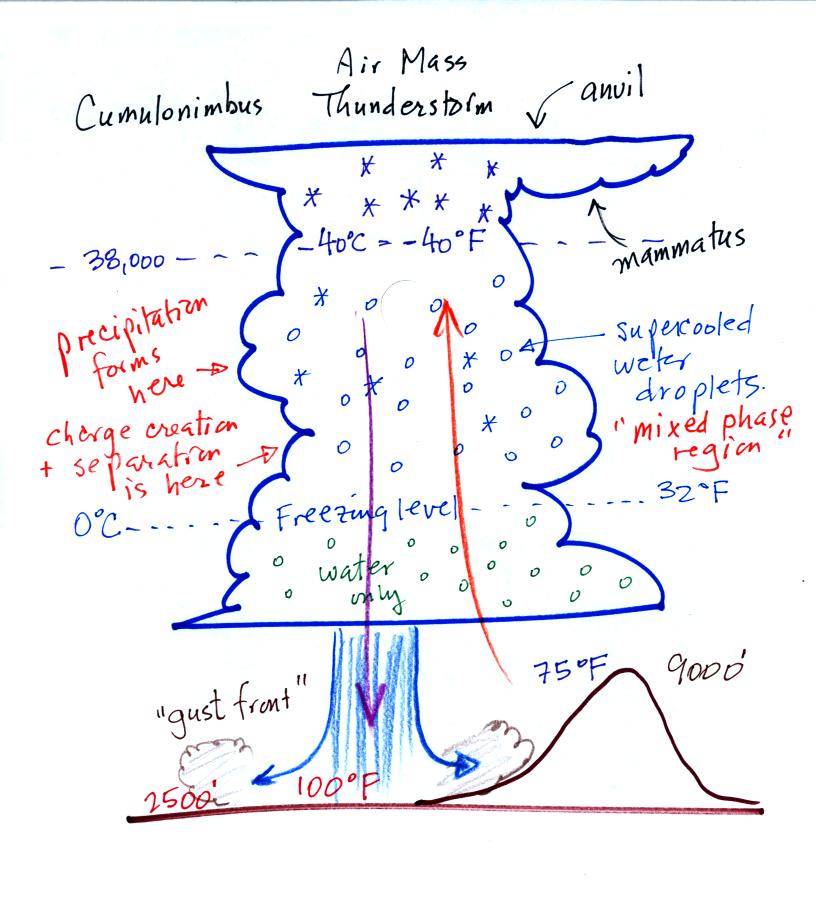 Air Mass
Cumulonimbus Thunderstorm
anvil
mammatus
- 38,000 - - -
-40°C = -40°F
precipitation
forms
here
supercooled
water
droplets.
"mixed phase
region"
charge creation
+ separation
is here
0°C
Freezing level
32°F
water
only
75°F
9000'
"gust front"
2500'
100°F